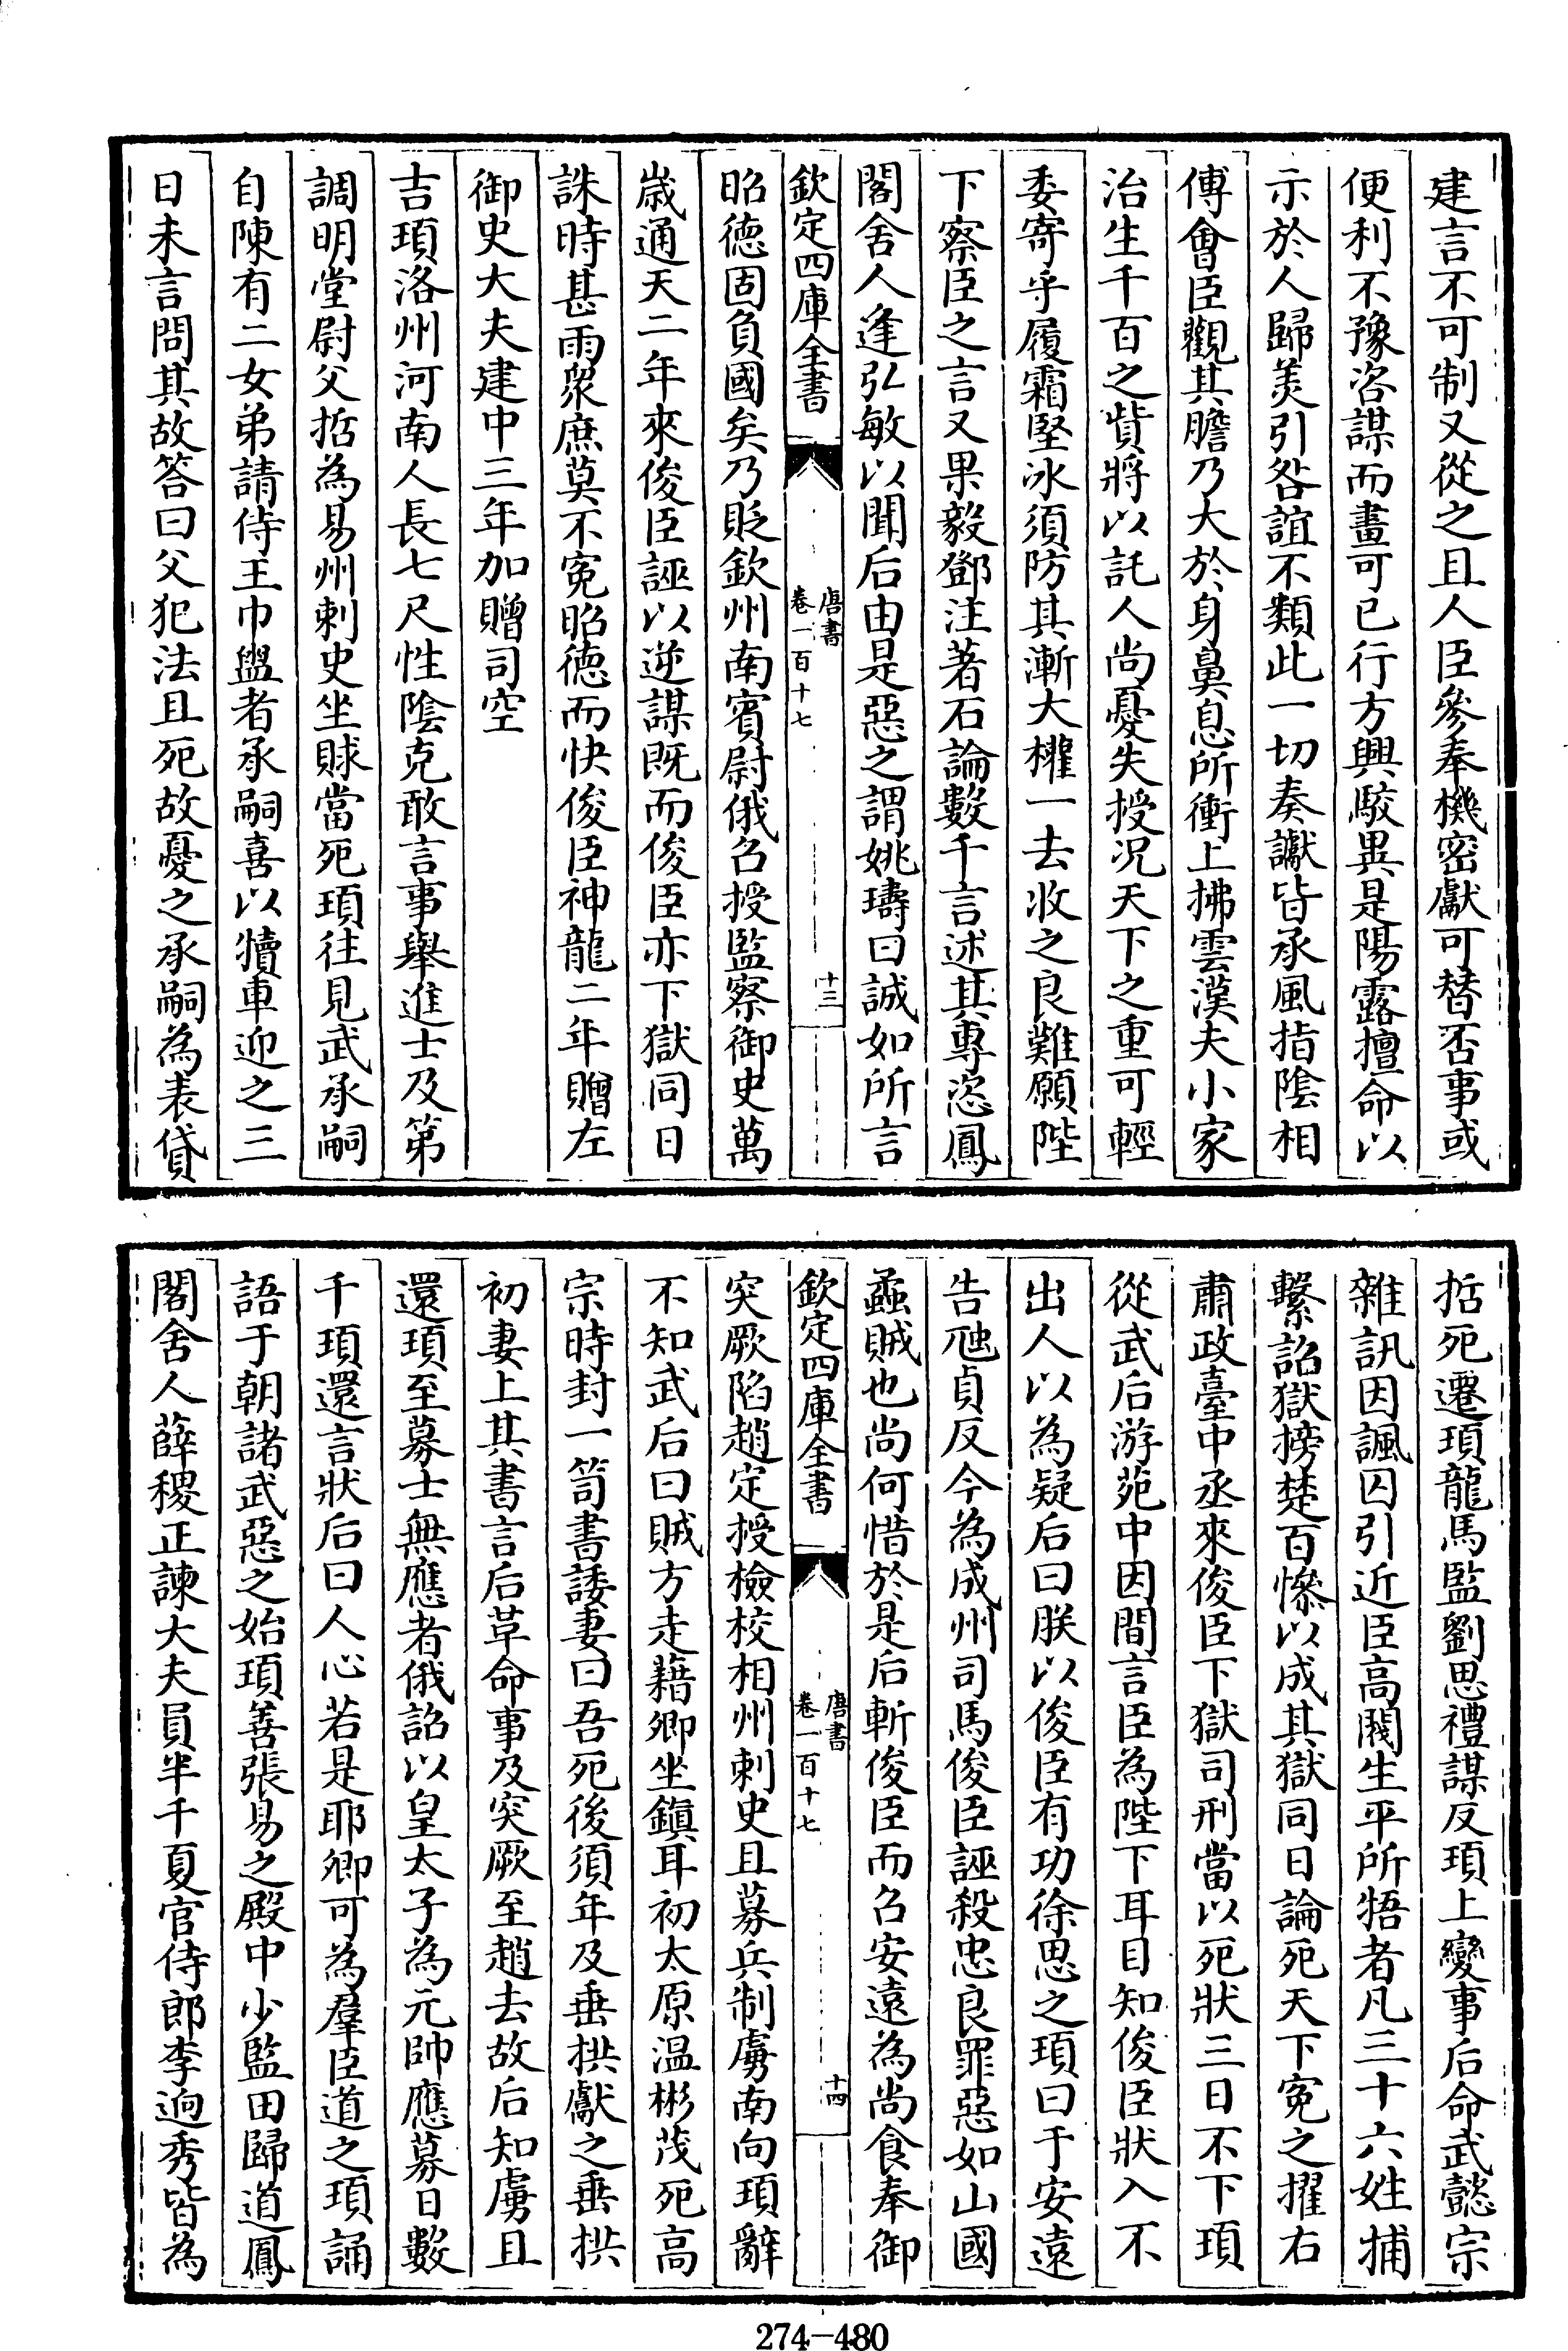 建言不可制又從之且人臣參奉機密獻可替否事或
便利不豫咨謀而畫可已行方興駮異是陽露擅命以
示於人歸美引咎誼不類此一切奏讞皆承風指陰相
傅會臣觀其膽乃大於身鼻息所衝上拂雲漢夫小家
治生千百之貲將以託人尚憂失授况天下之重可輕
委寄乎履霜堅冰須防其漸大權一去收之良難願陛
下察臣之言又果毅鄧注著石論數千言述其專恣鳳
閣舍人逢弘敏以聞后由是惡之謂姚璹曰誠如所言
欽定四庫全書
唐書
卷一百十七
十三
昭德固負國矣乃貶欽州南賓尉俄召授監察御史萬
歲通天二年來俊臣誣以逆謀既而俊臣亦下獄同日
誅時甚雨衆庶莫不寃昭德而快俊臣神龍二年贈左
御史大夫建中三年加贈司空
吉頊洛州河南人長七尺性陰克敢言事舉進士及第
調明堂尉父哲為易州刺史坐賕當死頊往見武承嗣
自陳有二女弟請侍王巾盥者承嗣喜以犢車迎之三
日未言問其故答曰父犯法且死故憂之承嗣為表貸
哲死遷頊龍馬監劉思禮謀反頊上變事后命武懿宗
雜訊因諷囚引近臣高閥生平所牾者凡三十六姓捕
繫詔獄搒楚百慘以成其獄同日論死天下寃之擢右
肅政臺中丞來俊臣下獄司刑當以死狀三日不下頊
從武后游苑中因間言臣為陛下耳目知俊臣狀入不
出人以為疑后曰朕以俊臣有功徐思之頊曰于安遠
告虺貞反今為成州司馬俊臣誣殺忠良罪惡如山國
蟊賊也尚何惜於是后斬俊臣而召安遠為尚食奉御
欽定四庫全書
唐書
卷一百十七
十四
突厥陷趙定授檢校相州刺史且募兵制虜南向頊辭
不知武后曰賊方走藉卿坐鎮耳初太原温彬茂死高
宗時封一笥書諉妻曰吾死後須年及垂拱獻之垂拱
初妻上其書言后革命事及突厥至趙去故后知虜且
還頊至募士無應者俄詔以皇太子為元帥應募日數
千頊還言狀后曰人心若是耶卿可為羣臣道之頊誦
語于朝諸武惡之始頊善張易之殿中少監田歸道鳳
閣舍人薛稷正諫大夫員半千夏官侍郎李迥秀皆為
274-480